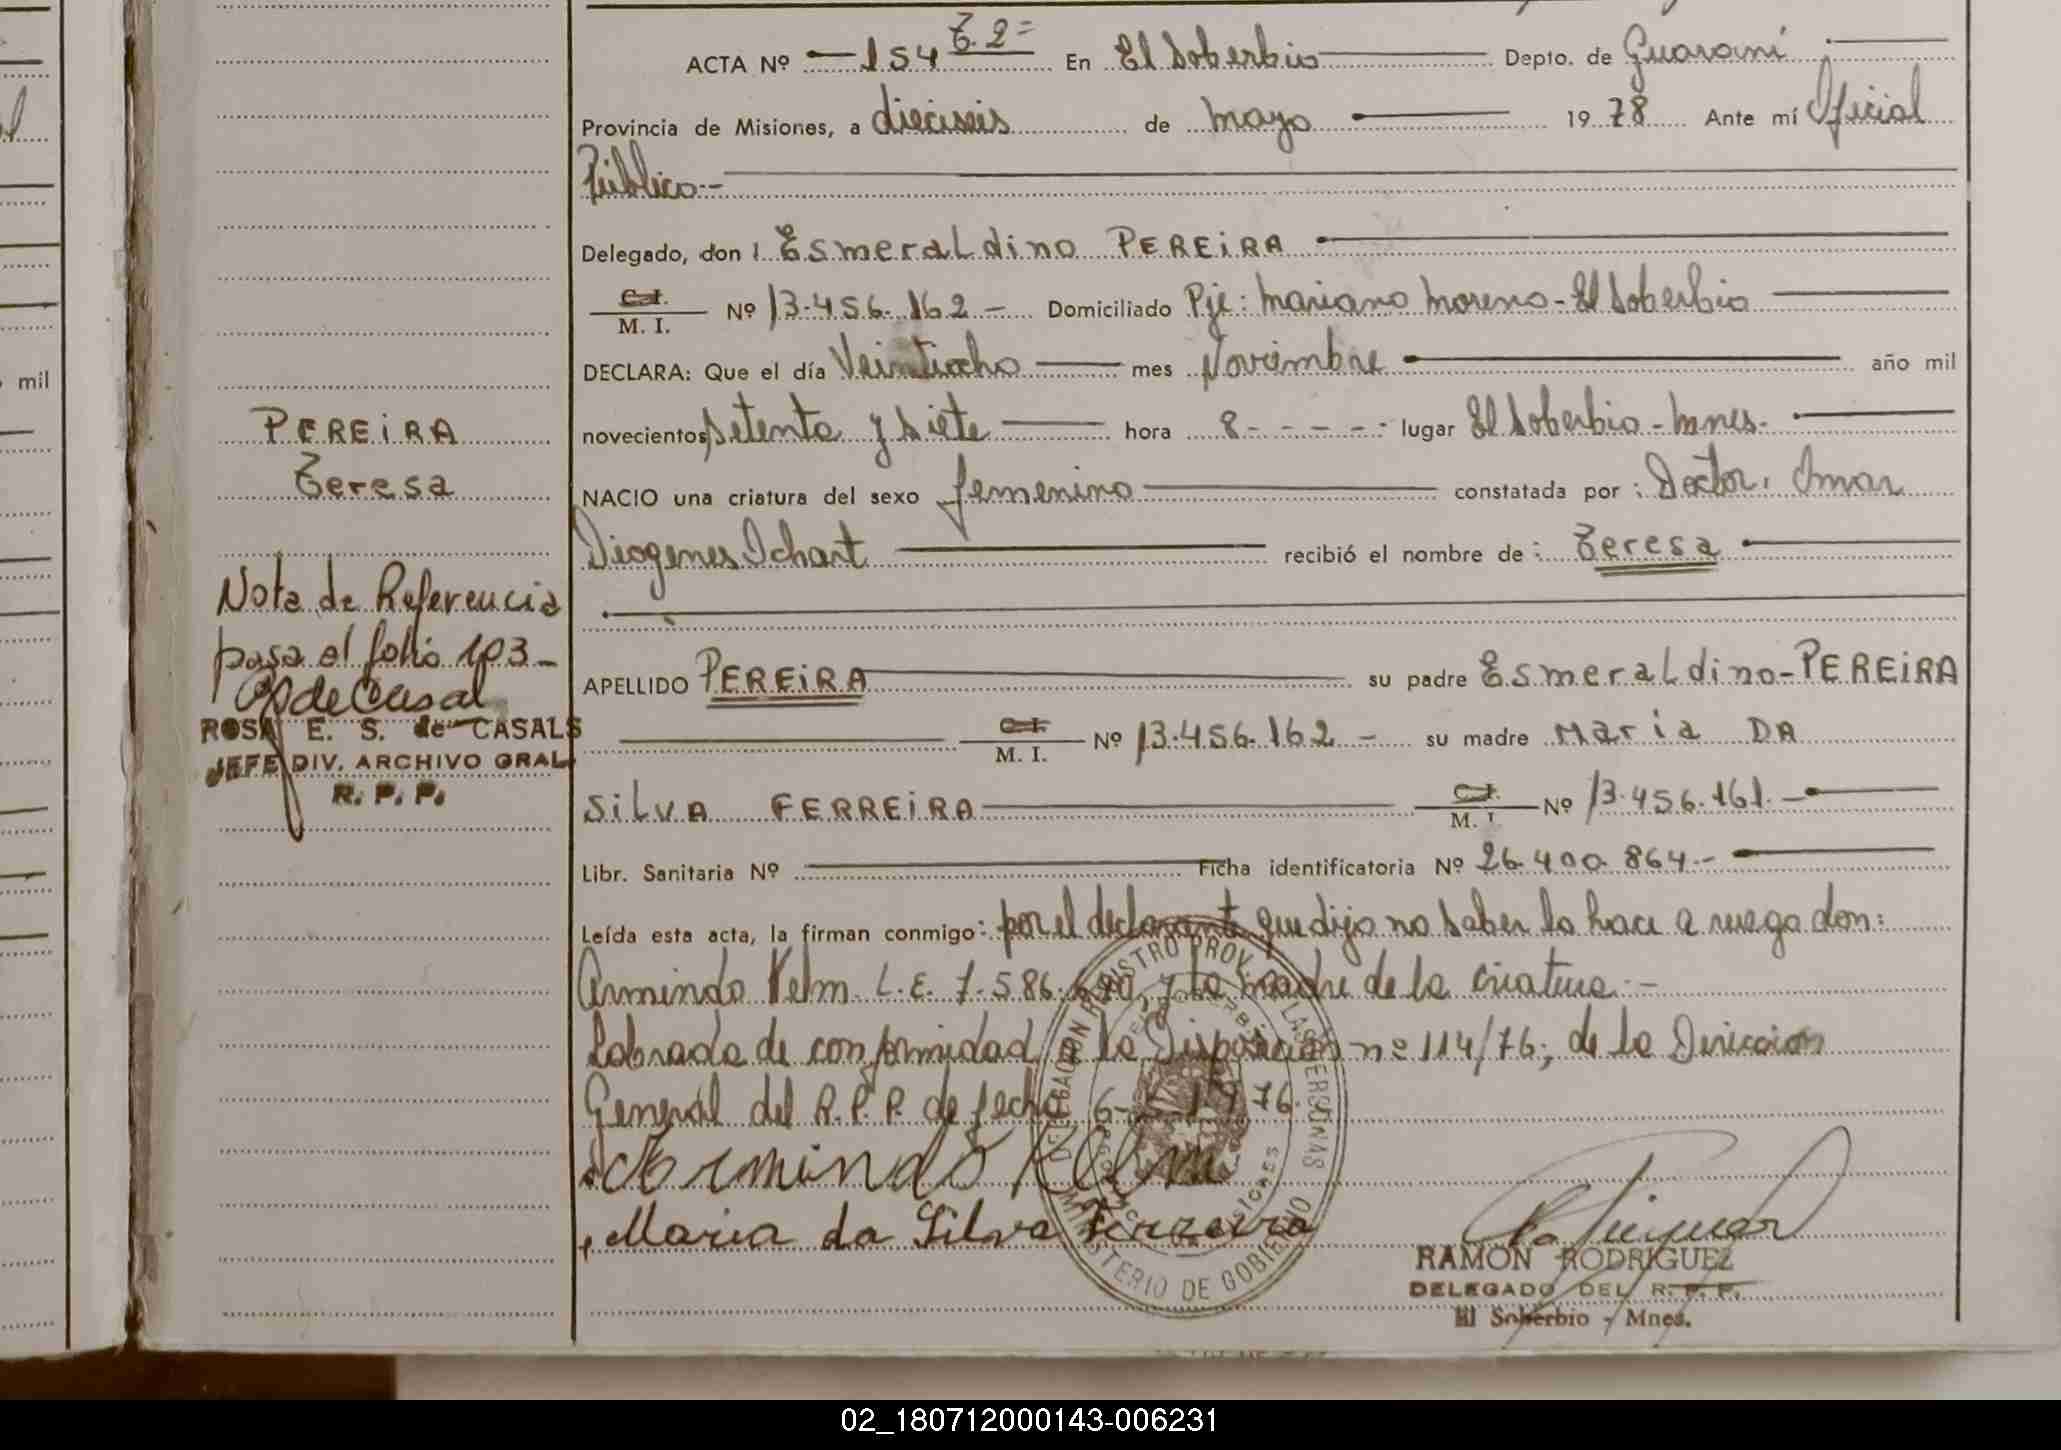 ACTA Nº 154 T. 2= En El Soberbio Depto. de Guaraní
Provincia de Misiones, a dieciseis de mayo 1978 Ante mí Oficial
Público.-
Delegado, don : Esmeraldino PEREIRA
C.I. M. I. Nº 13.456.162 - Domiciliado Pje: Mariano Moreno - El Soberbio
mil
DECLARA: Que el día Veintiocho mes Noviembre año mil
novecientos setenta y siete hora 8 - - - - - lugar El Soberbio - Mnes.-
NACIO una criatura del sexo femenino constatada por : Doctor. Omar
Diogenes Ichart recibió el nombre de : Teresa
APELLIDO PEREIRA su padre Esmeraldino - PEREIRA
C.I. M. I. Nº 13.456.162 - su madre Maria DA
SILVA FERREIRA C.I. M. I. Nº 13.456.161. -
Libr. Sanitaria Nº Ficha identificatoria Nº 26.400.864.-
Leída esta acta, la firman conmigo: por el declarante que dijo no saber lo hace a ruego don:
Armindo Kelm L.E. 7.586.690, y la madre de la criatura.-
Labrada de conformidad a la Disposición nº 114/76; de la Direccion
General del R.P.P. de fecha 6- 1976.
Armindo Kelm
Maria da Silva Ferreira
RAMON RODRIGUEZ
DELEGADO DEL R. P. P.
El Soberbio - Mnes.
PEREIRA
Teresa
Nota de Referencia
pasa al folio 103 -
de Casal
ROSA E. S. de CASALS
JEFE DIV. ARCHIVO GRAL.
R. P. P.
DELEGACION REGISTRO PROV. DE LAS PERSONAS
MINISTERIO DE GOBIERNO
MISIONES
02_180712000143-006231